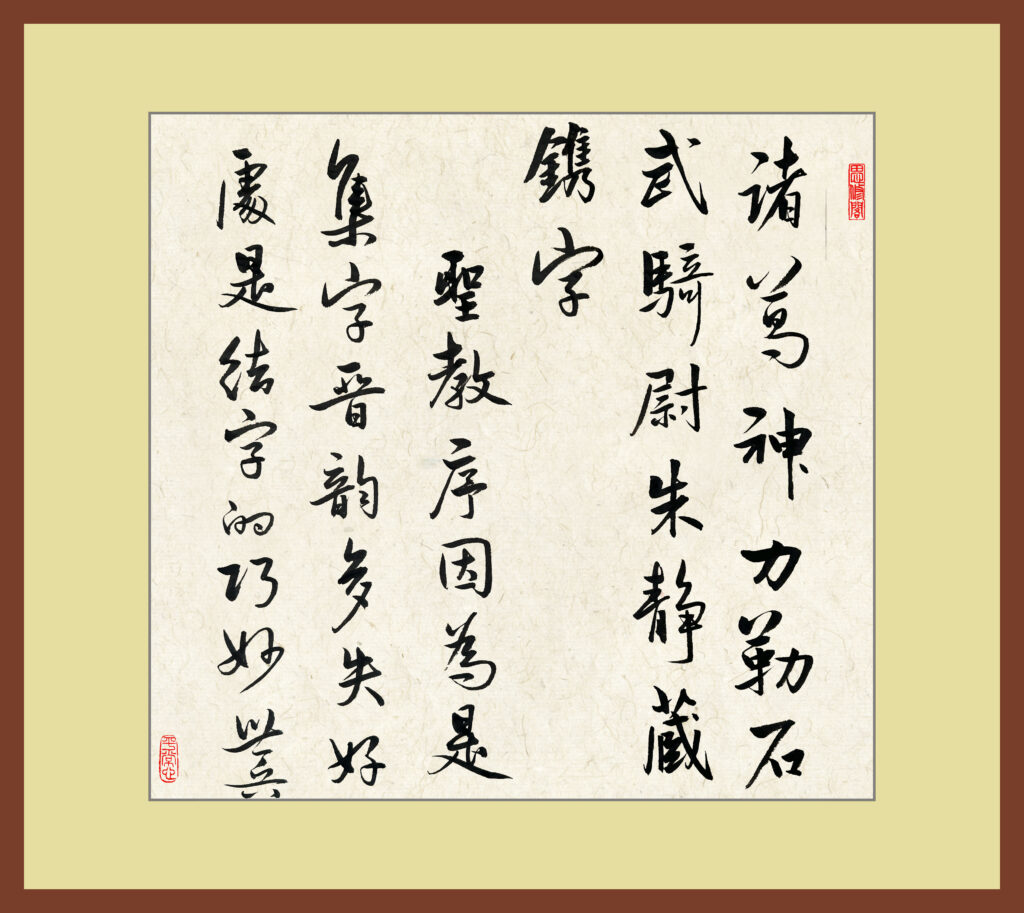 思修閣
诸葛神力勒石
武騎尉朱静藏
鐫字
聖教序因為是
集字晋韵多失好
處是结字的巧妙
平常心